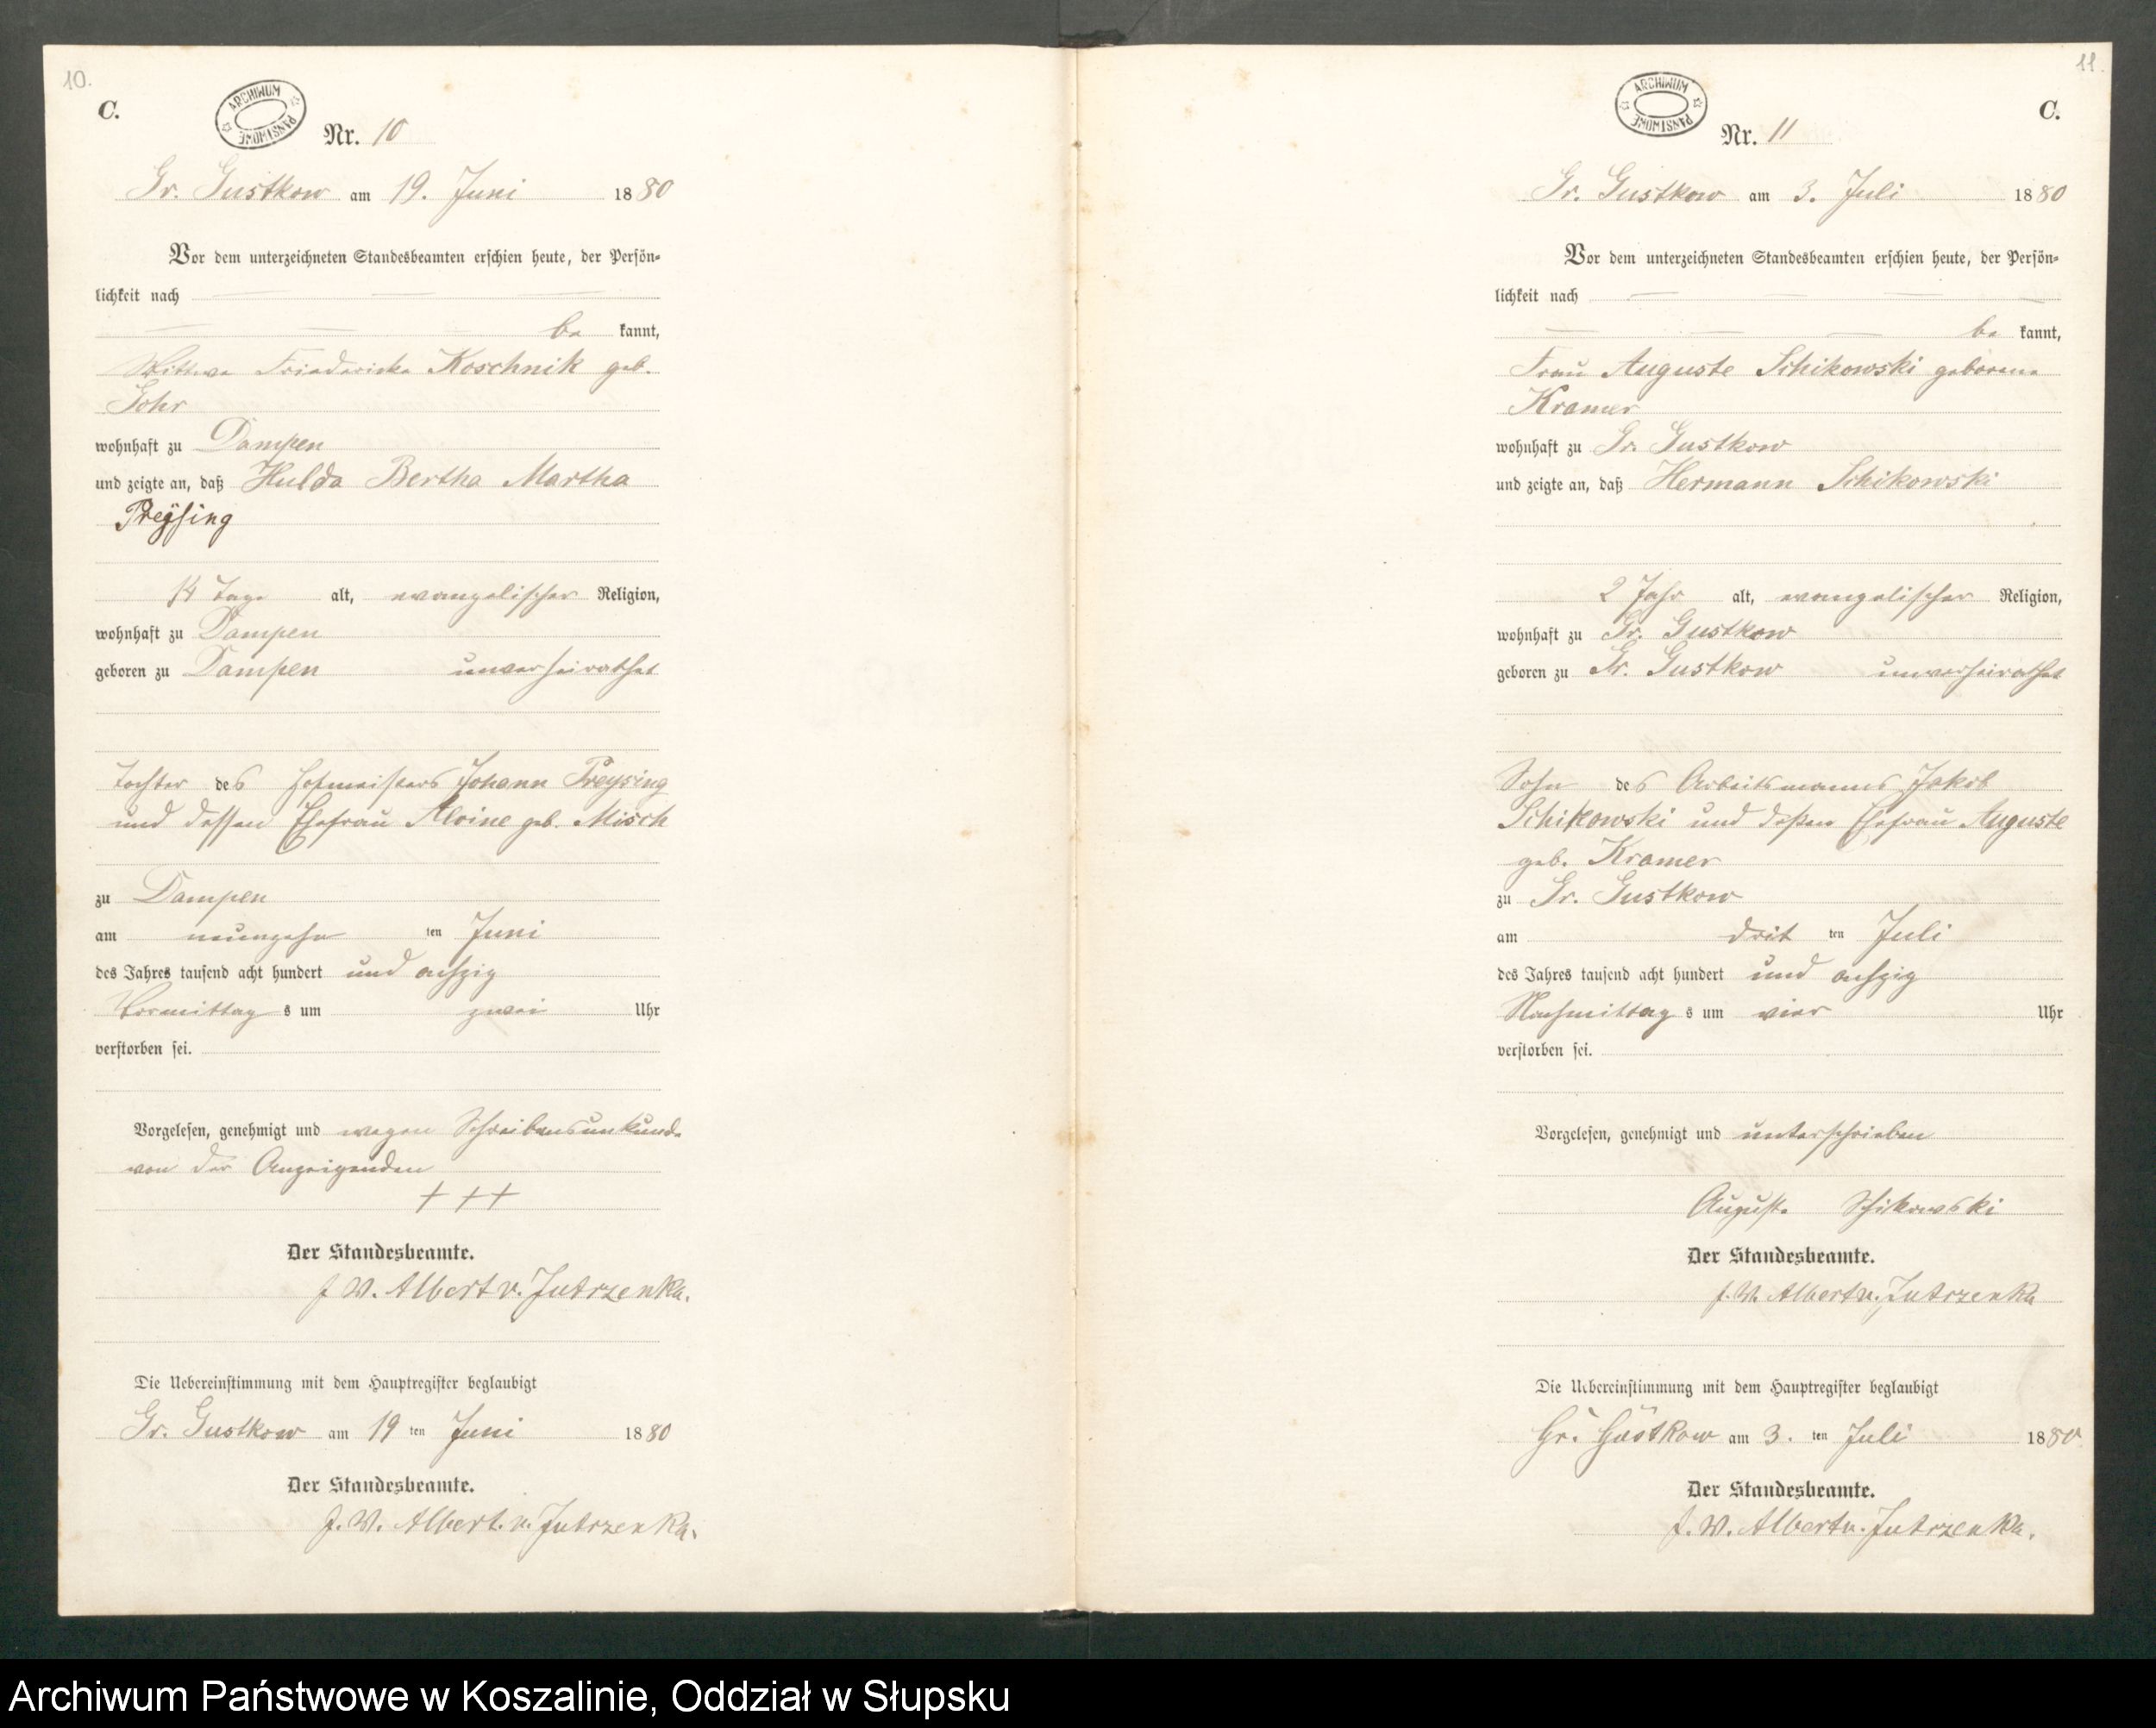 10.
C.
ARCHIWUM PAŃSTWOWE
Nr. 10
Gr. Gustkow am 19. Juni 1880
Vor dem unterzeichneten Standesbeamten erschien heute, der Persön-
lichkeit nach
be kannt,
Wittwe Friedericke Koschnik geb.
Gohr
wohnhaft zu Dampen
und zeigte an, daß Hulda Bertha Martha
Preÿsing
14 Tage alt, evangelischer Religion,
wohnhaft zu Dampen
geboren zu Dampen unverheirathet
Tochter des Hofmeisters Johann Preysing
und dessen Ehefrau Alvine geb. Misch
zu Dampen
am neunzehn ten Juni
des Jahres tausend acht hundert und achzig
Vormittag s um zwei Uhr
verstorben sei.
Vorgelesen, genehmigt und wegen Schreibensunkunde
von der Anzeigenden
+ + +
Der Standesbeamte.
J. W. Albert v. Jutrzenka.
Die Uebereinstimmung mit dem Hauptregister beglaubigt
Gr. Gustkow am 19 ten Juni 1880
Der Standesbeamte.
J. W. Albert. v. Jutrzenka.
11.
C.
ARCHIWUM PAŃSTWOWE
Nr. 11
Gr. Gustkow am 3. Juli 1880
Vor dem unterzeichneten Standesbeamten erschien heute, der Persön-
lichkeit nach
be kannt,
Frau Auguste Schikowski geborene
Kramer
wohnhaft zu Gr. Gustkow
und zeigte an, daß Hermann Schikowski
2 Jahr alt, evangelischer Religion,
wohnhaft zu Gr. Gustkow
geboren zu Gr. Gustkow unverheirathet
Sohn des Arbeitsmanns Jakob
Schikowski und deßen Ehefrau Auguste
geb. Kramer
zu Gr. Gustkow
am drit ten Juli
des Jahres tausend acht hundert und achzig
Nachmittag s um vier Uhr
verstorben sei.
Vorgelesen, genehmigt und unterschrieben
Auguste Schikowski
Der Standesbeamte.
J. W. Albert v. Jutrzenka
Die Uebereinstimmung mit dem Hauptregister beglaubigt
Gr. Gustkow am 3. ten Juli 1880
Der Standesbeamte.
J. W. Albert v. Jutrzenka.
Archiwum Państwowe w Koszalinie, Oddział w Słupsku